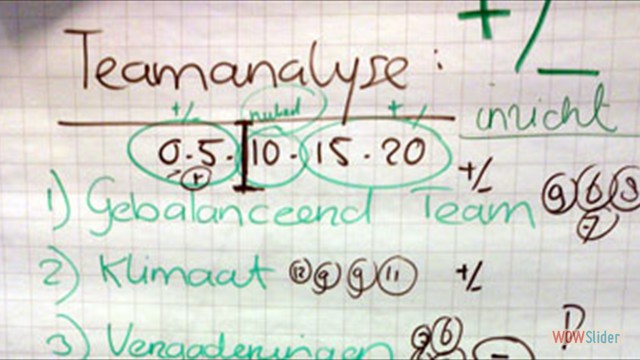 +/-
Teamanalyse:
+/- + /
inzicht
0.5. 10. 15. 20
+ +/-
1) Gebalanceend Team 9 6 8
-7
2) Klimaat 12 9 9 11 +/-
3) Vergaderingen 8 6 - ?
WOWSlider